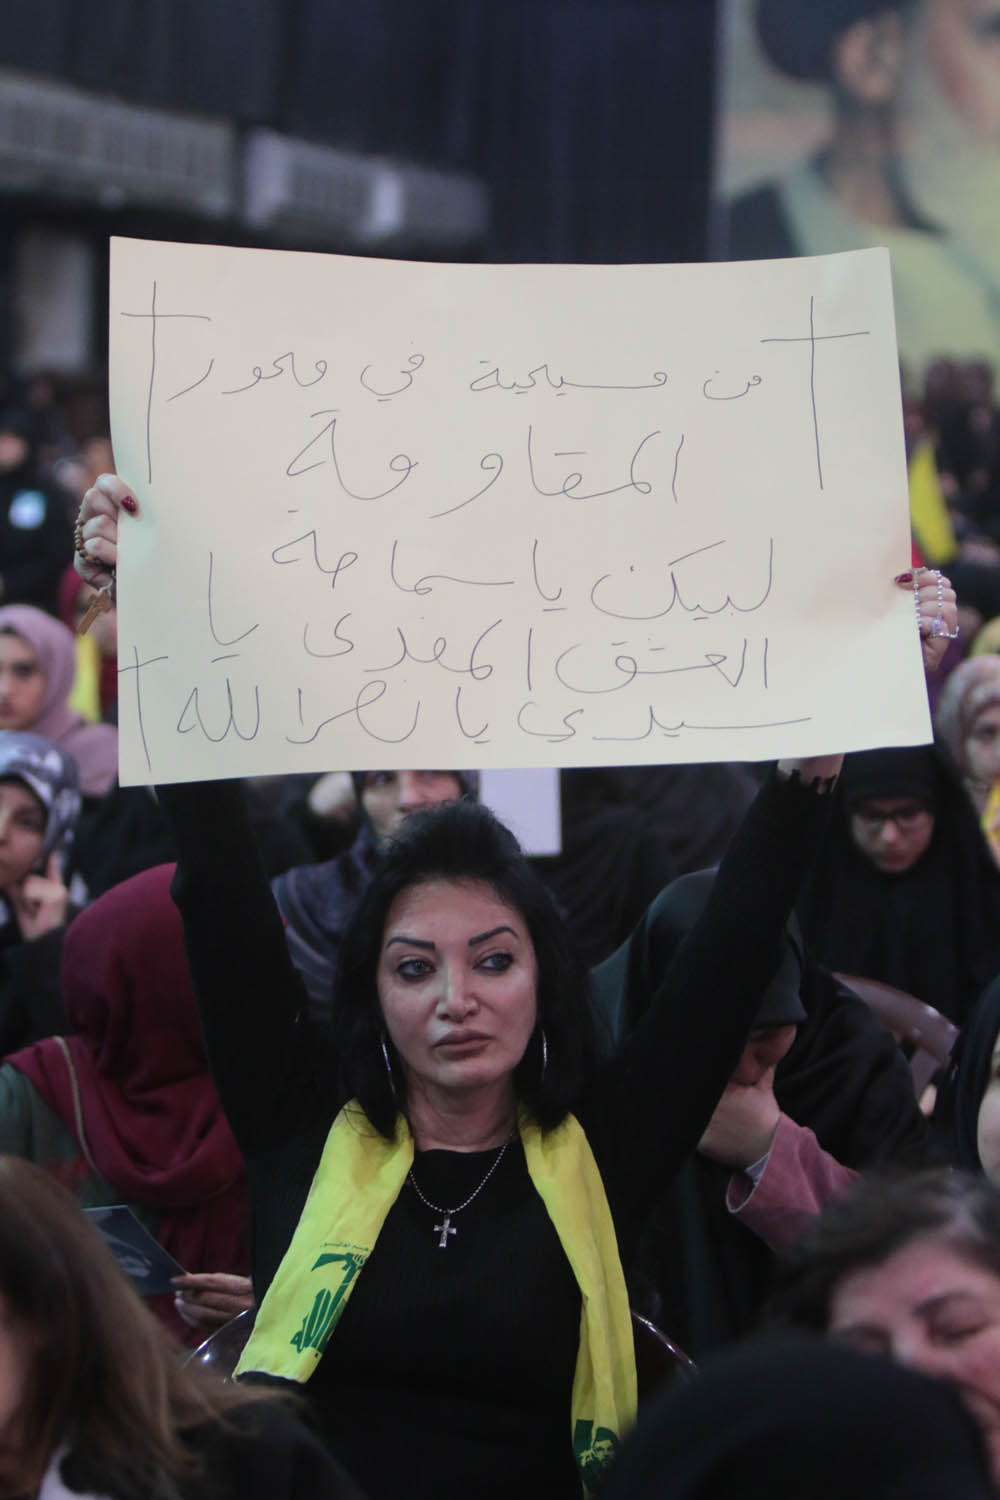 من مسيحية في محور
المقاومة
لبيك يا سماحة
العشق المفدى يا
سيدي يا نصرالله